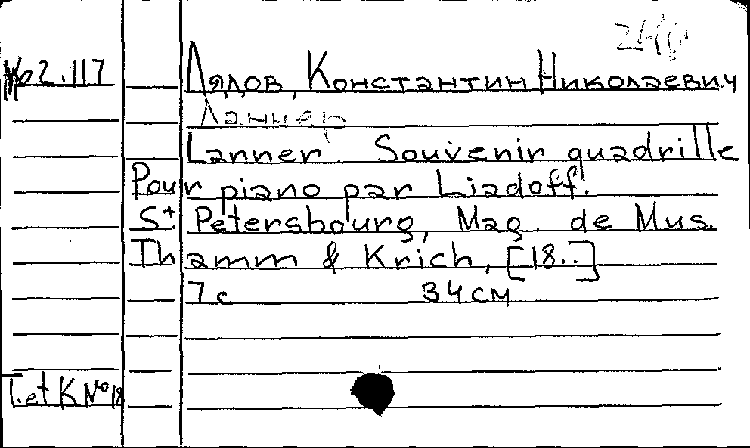 Лядов, Константин Николаевич
Ланнер
Lanner Souvenir quadrille
Pour piano par Liadoff.
St Petersbourg, Mag. de Mus.
Thamm & Krich, [18..]
7 с 34 см
T. et K № 18